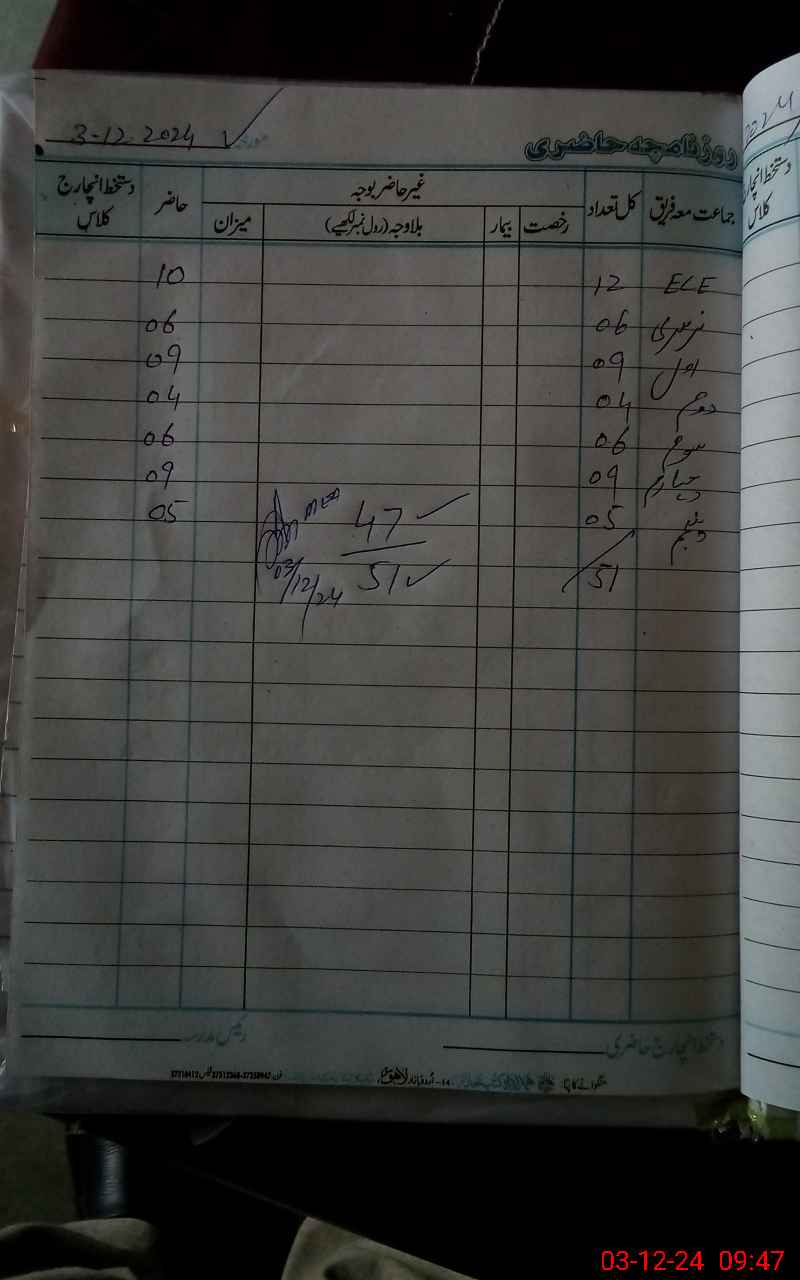 روزنامچہ حاضری
مورخہ 3-12-2024
جماعت معہ فریق کل تعداد غیر حاضر بوجہ حاضر دستخط انچارج کلاس
رخصت بیمار بلاوجہ (رول نمبر لکھیے) میزان
ECE 12 10
نرسری 06 06
اول 09 09
دوم 04 04
سوم 06 06
چہارم 09 09
پنجم 05 05
51
MEA 47
51
03/12/24
دستخط انچارج حاضری
رئیس مدرسہ
دستخط انچارج
کلاس
03-12-24 09:47